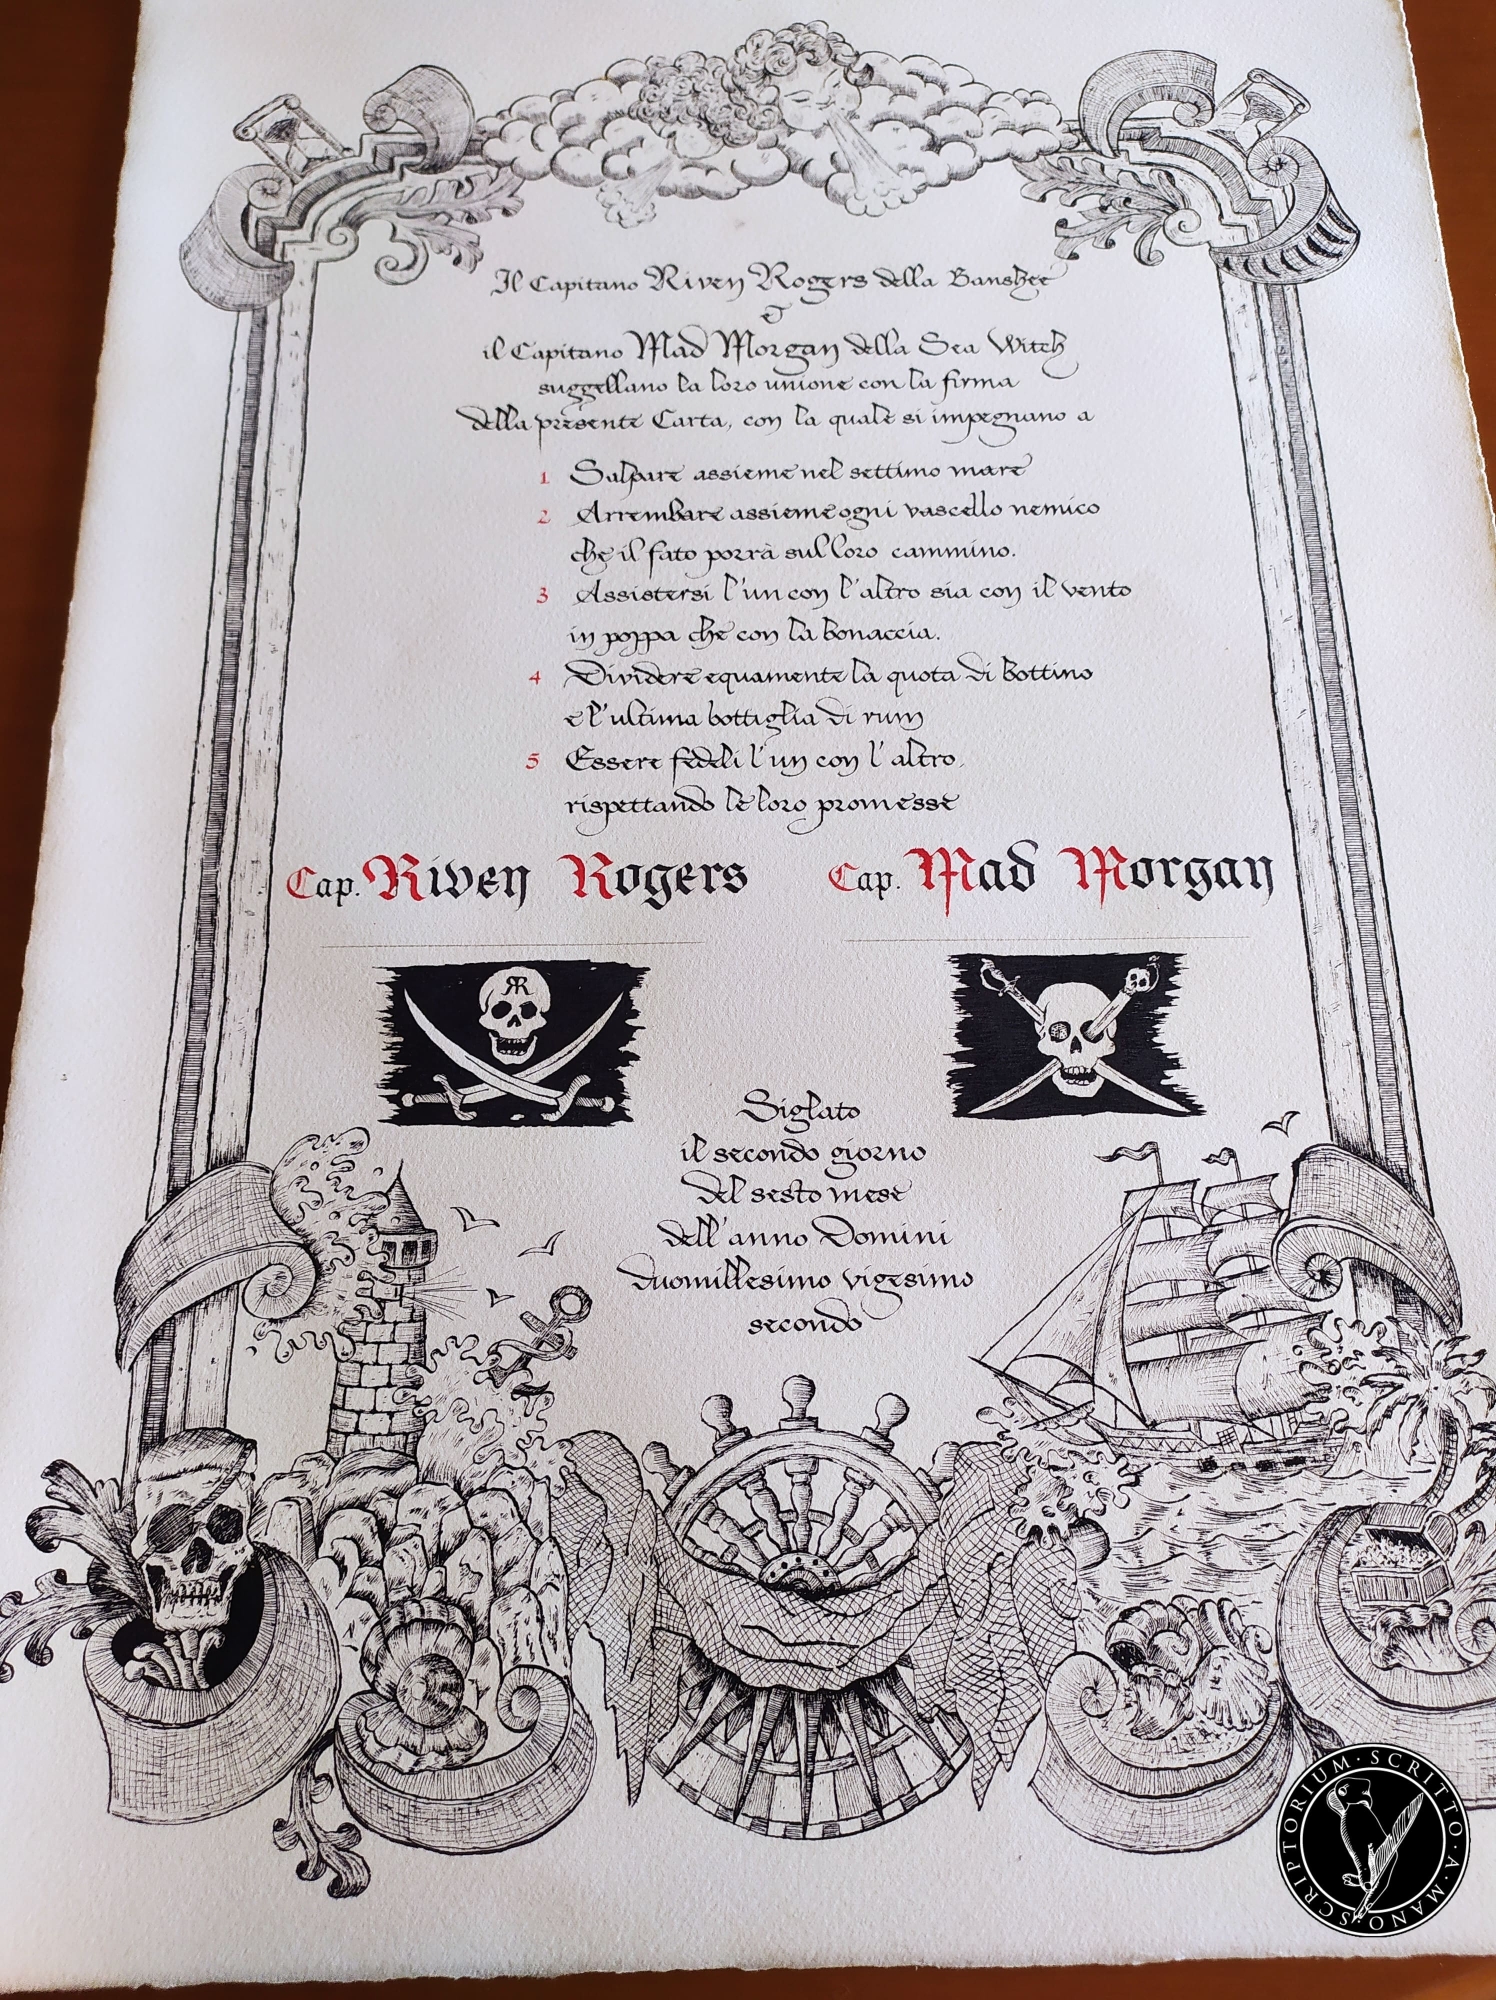 Il Capitano Riven Rogers della Banshee
&
il Capitano Mad Morgan della Sea Witch
suggellano la loro unione con la firma
della presente Carta, con la quale si impegnano a
1 Salpare assieme nel settimo mare
2 Arrembare assieme ogni vascello nemico
che il fato porrà sul loro cammino.
3 Assistersi l'un con l'altro sia con il vento
in poppa che con la bonaccia.
4 Dividere equamente la quota di bottino
e l'ultima bottiglia di rum
5 Essere fedeli l'un con l'altro,
rispettando le loro promesse
Cap. Riven Rogers Cap. Mad Morgan
RR
Siglato
il secondo giorno
del sesto mese
dell'anno Domini
duomillesimo vigesimo
secondo
SCRIPTORIUM · SCRITTO · A · MANO